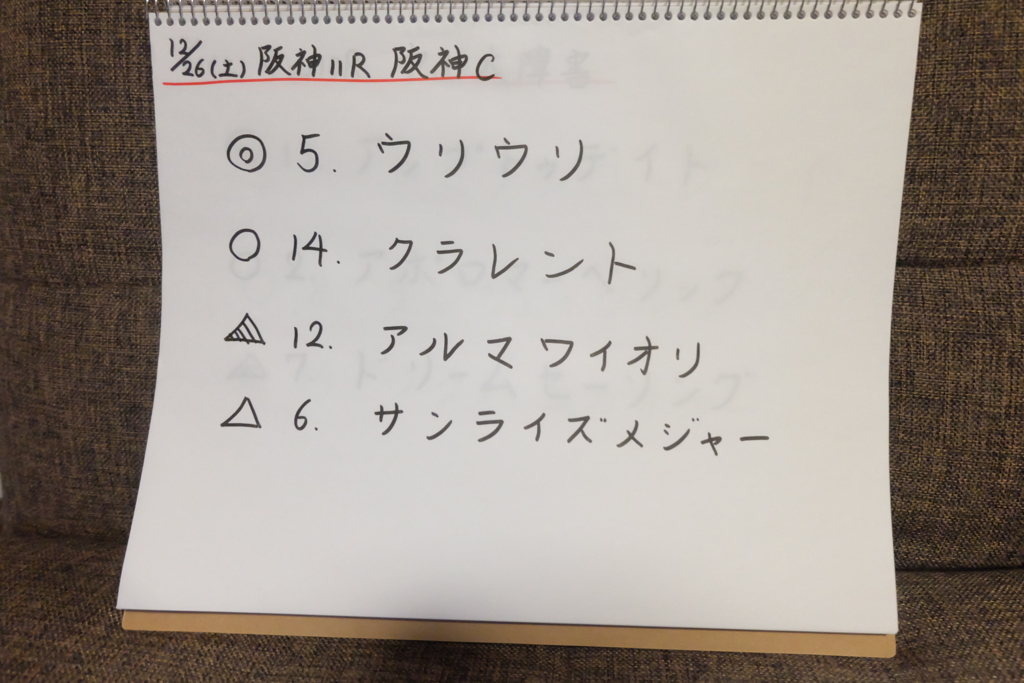 12/26(土) 阪神11R 阪神C
◎ 5. ウリウリ
○ 14. クラレント
▲ 12. アルマワイオリ
△ 6. サンライズメジャー